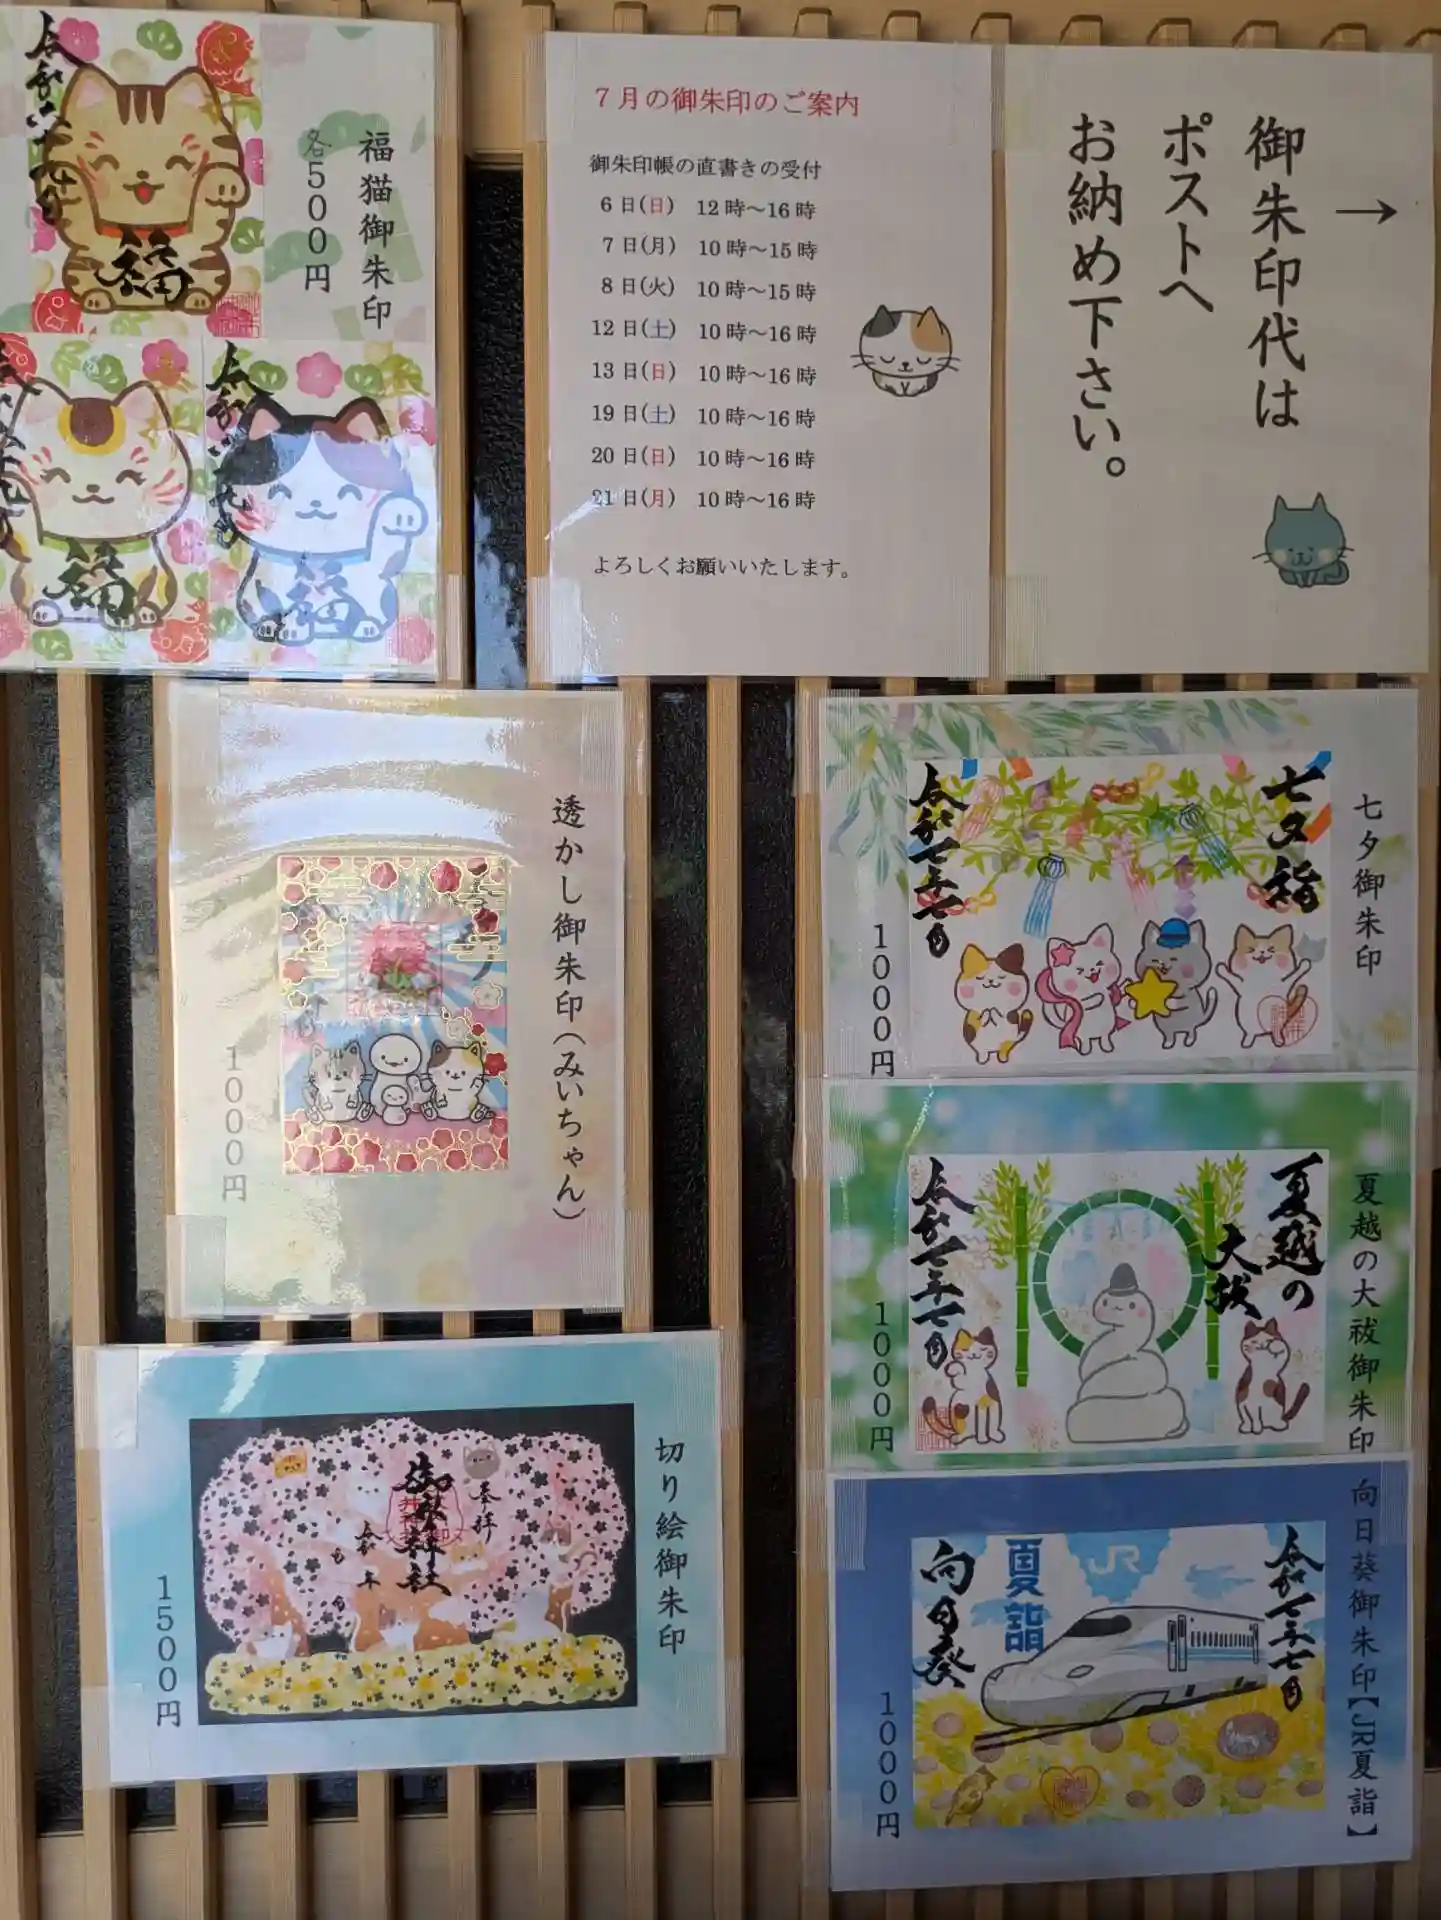 →
御朱印代は
ポストへ
お納め下さい。
7月の御朱印のご案内
御朱印帳の直書きの受付
6日(日) 12時～16時
7日(月) 10時～15時
8日(火) 10時～15時
12日(土) 10時～16時
13日(日) 10時～16時
19日(土) 10時～16時
20日(日) 10時～16時
21日(月) 10時～16時
よろしくお願いいたします。
福猫御朱印
各500円
福
福
福
七夕御朱印
1000円
七夕詣
令和七年七月
透かし御朱印(みいちゃん)
1000円
夏越の大祓御朱印
1000円
夏越の
大祓
令和七年七月
切り絵御朱印
1500円
奉拝
令和 年
月
日
向日葵御朱印【JR夏詣】
1000円
令和七年七月
JR
夏詣
向日葵